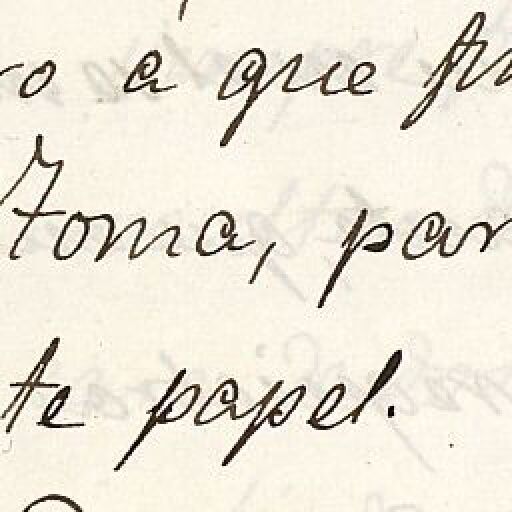 ro a que
toma, par
te papel.